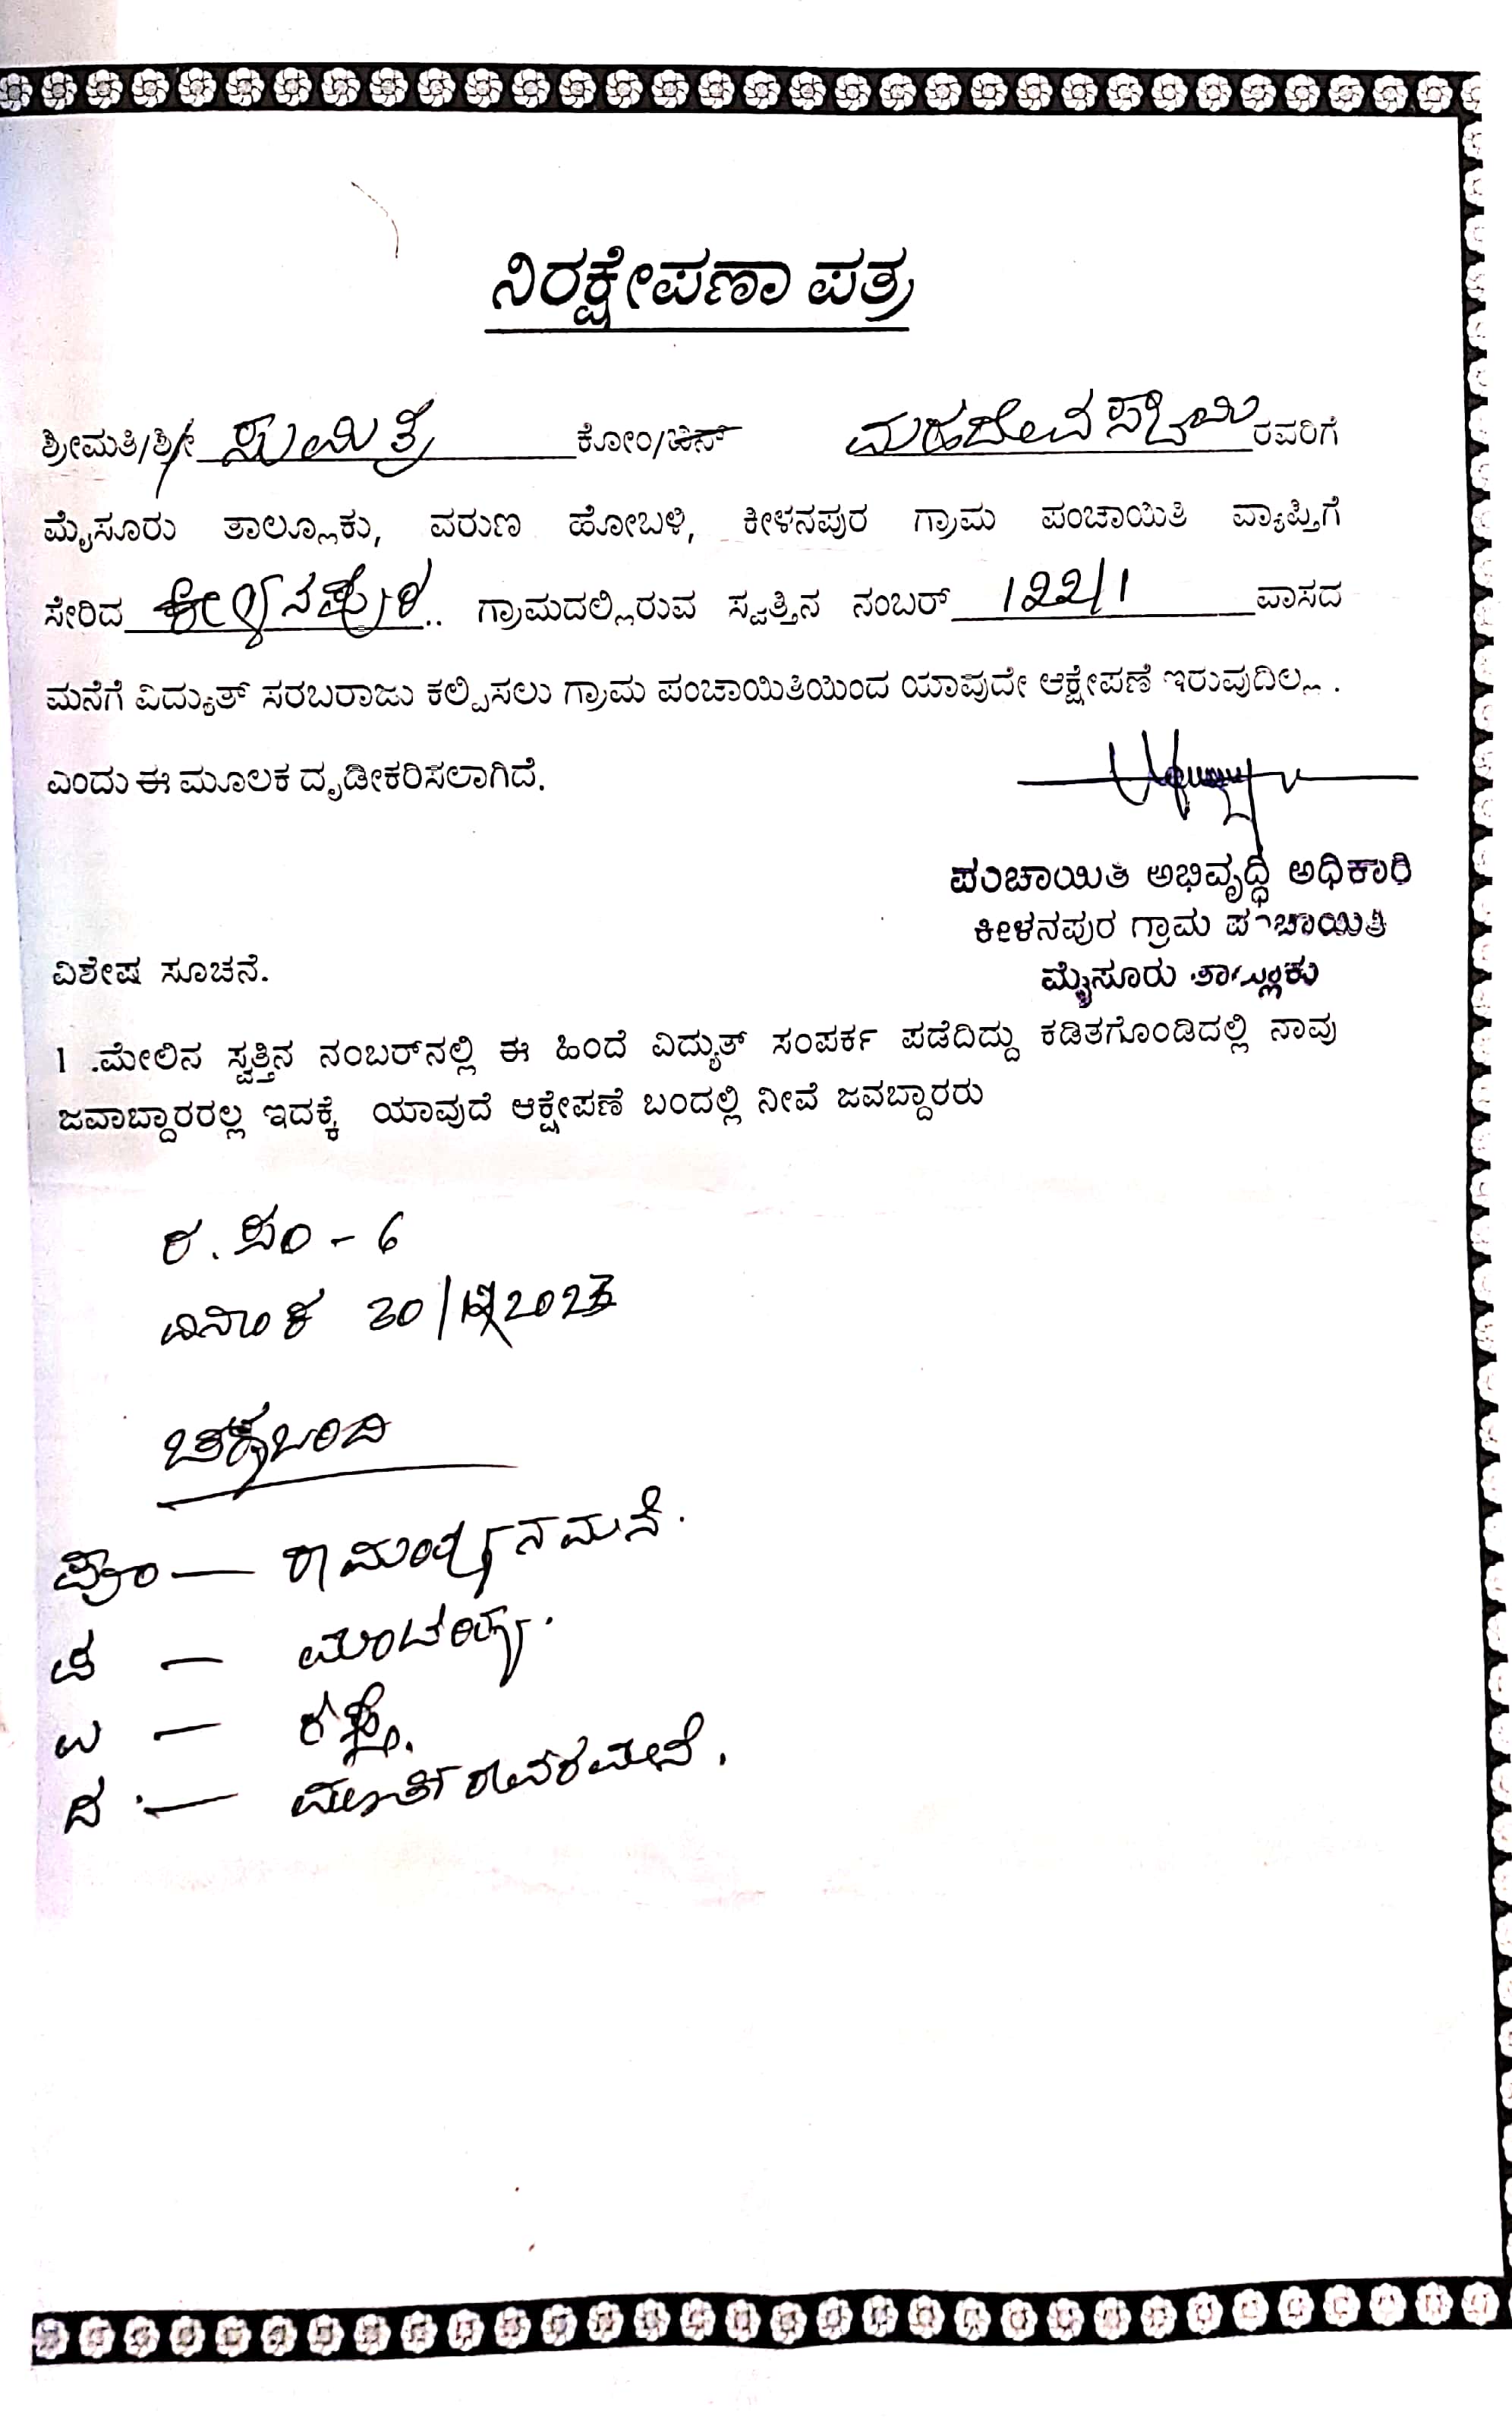 ನಿರಕ್ಷೇಪಣಾ ಪತ್ರ
ಶ್ರೀಮತಿ/ಶ್ರೀ ಸುಮಿತ್ರ ಕೋಂ/ಬಿನ್ ಮಹದೇವಸ್ವಾಮಿ ರವರಿಗೆ
ಮೈಸೂರು ತಾಲ್ಲೂಕು, ವರುಣ ಹೋಬಳಿ, ಕೀಳನಪುರ ಗ್ರಾಮ ಪಂಚಾಯಿತಿ ವ್ಯಾಪ್ತಿಗೆ
ಸೇರಿದ ಕೀಳನಪುರ.. ಗ್ರಾಮದಲ್ಲಿರುವ ಸ್ವತ್ತಿನ ನಂಬರ್ 122/1 ವಾಸದ
ಮನೆಗೆ ವಿದ್ಯುತ್ ಸರಬರಾಜು ಕಲ್ಪಿಸಲು ಗ್ರಾಮ ಪಂಚಾಯಿತಿಯಿಂದ ಯಾವುದೇ ಆಕ್ಷೇಪಣೆ ಇರುವುದಿಲ್ಲ .
ಎಂದು ಈ ಮೂಲಕ ದೃಡೀಕರಿಸಲಾಗಿದೆ.
ಪಂಚಾಯಿತಿ ಅಭಿವೃದ್ಧಿ ಅಧಿಕಾರಿ
ಕೀಳನಪುರ ಗ್ರಾಮ ಪಂಚಾಯಿತಿ
ಮೈಸೂರು ತಾಲ್ಲೂಕು
ವಿಶೇಷ ಸೂಚನೆ.
1 .ಮೇಲಿನ ಸ್ವತ್ತಿನ ನಂಬರ್‌ನಲ್ಲಿ ಈ ಹಿಂದೆ ವಿದ್ಯುತ್ ಸಂಪರ್ಕ ಪಡೆದಿದ್ದು ಕಡಿತಗೊಂಡಿದಲ್ಲಿ ನಾವು
ಜವಾಬ್ದಾರರಲ್ಲ ಇದಕ್ಕೆ ಯಾವುದೆ ಆಕ್ಷೇಪಣೆ ಬಂದಲ್ಲಿ ನೀವೆ ಜವಬ್ದಾರರು
ರ.ಸಂ - 6
ದಿನಾಂಕ
ಚಕ್ಕುಬಂದಿ
ಪೂ —
ಪ —
ಉ — ರಸ್ತೆ.
ದ — ಮೂರ್ತಿರವರಮನೆ.